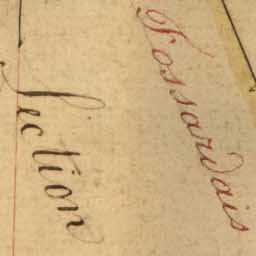 Section
Fossardais